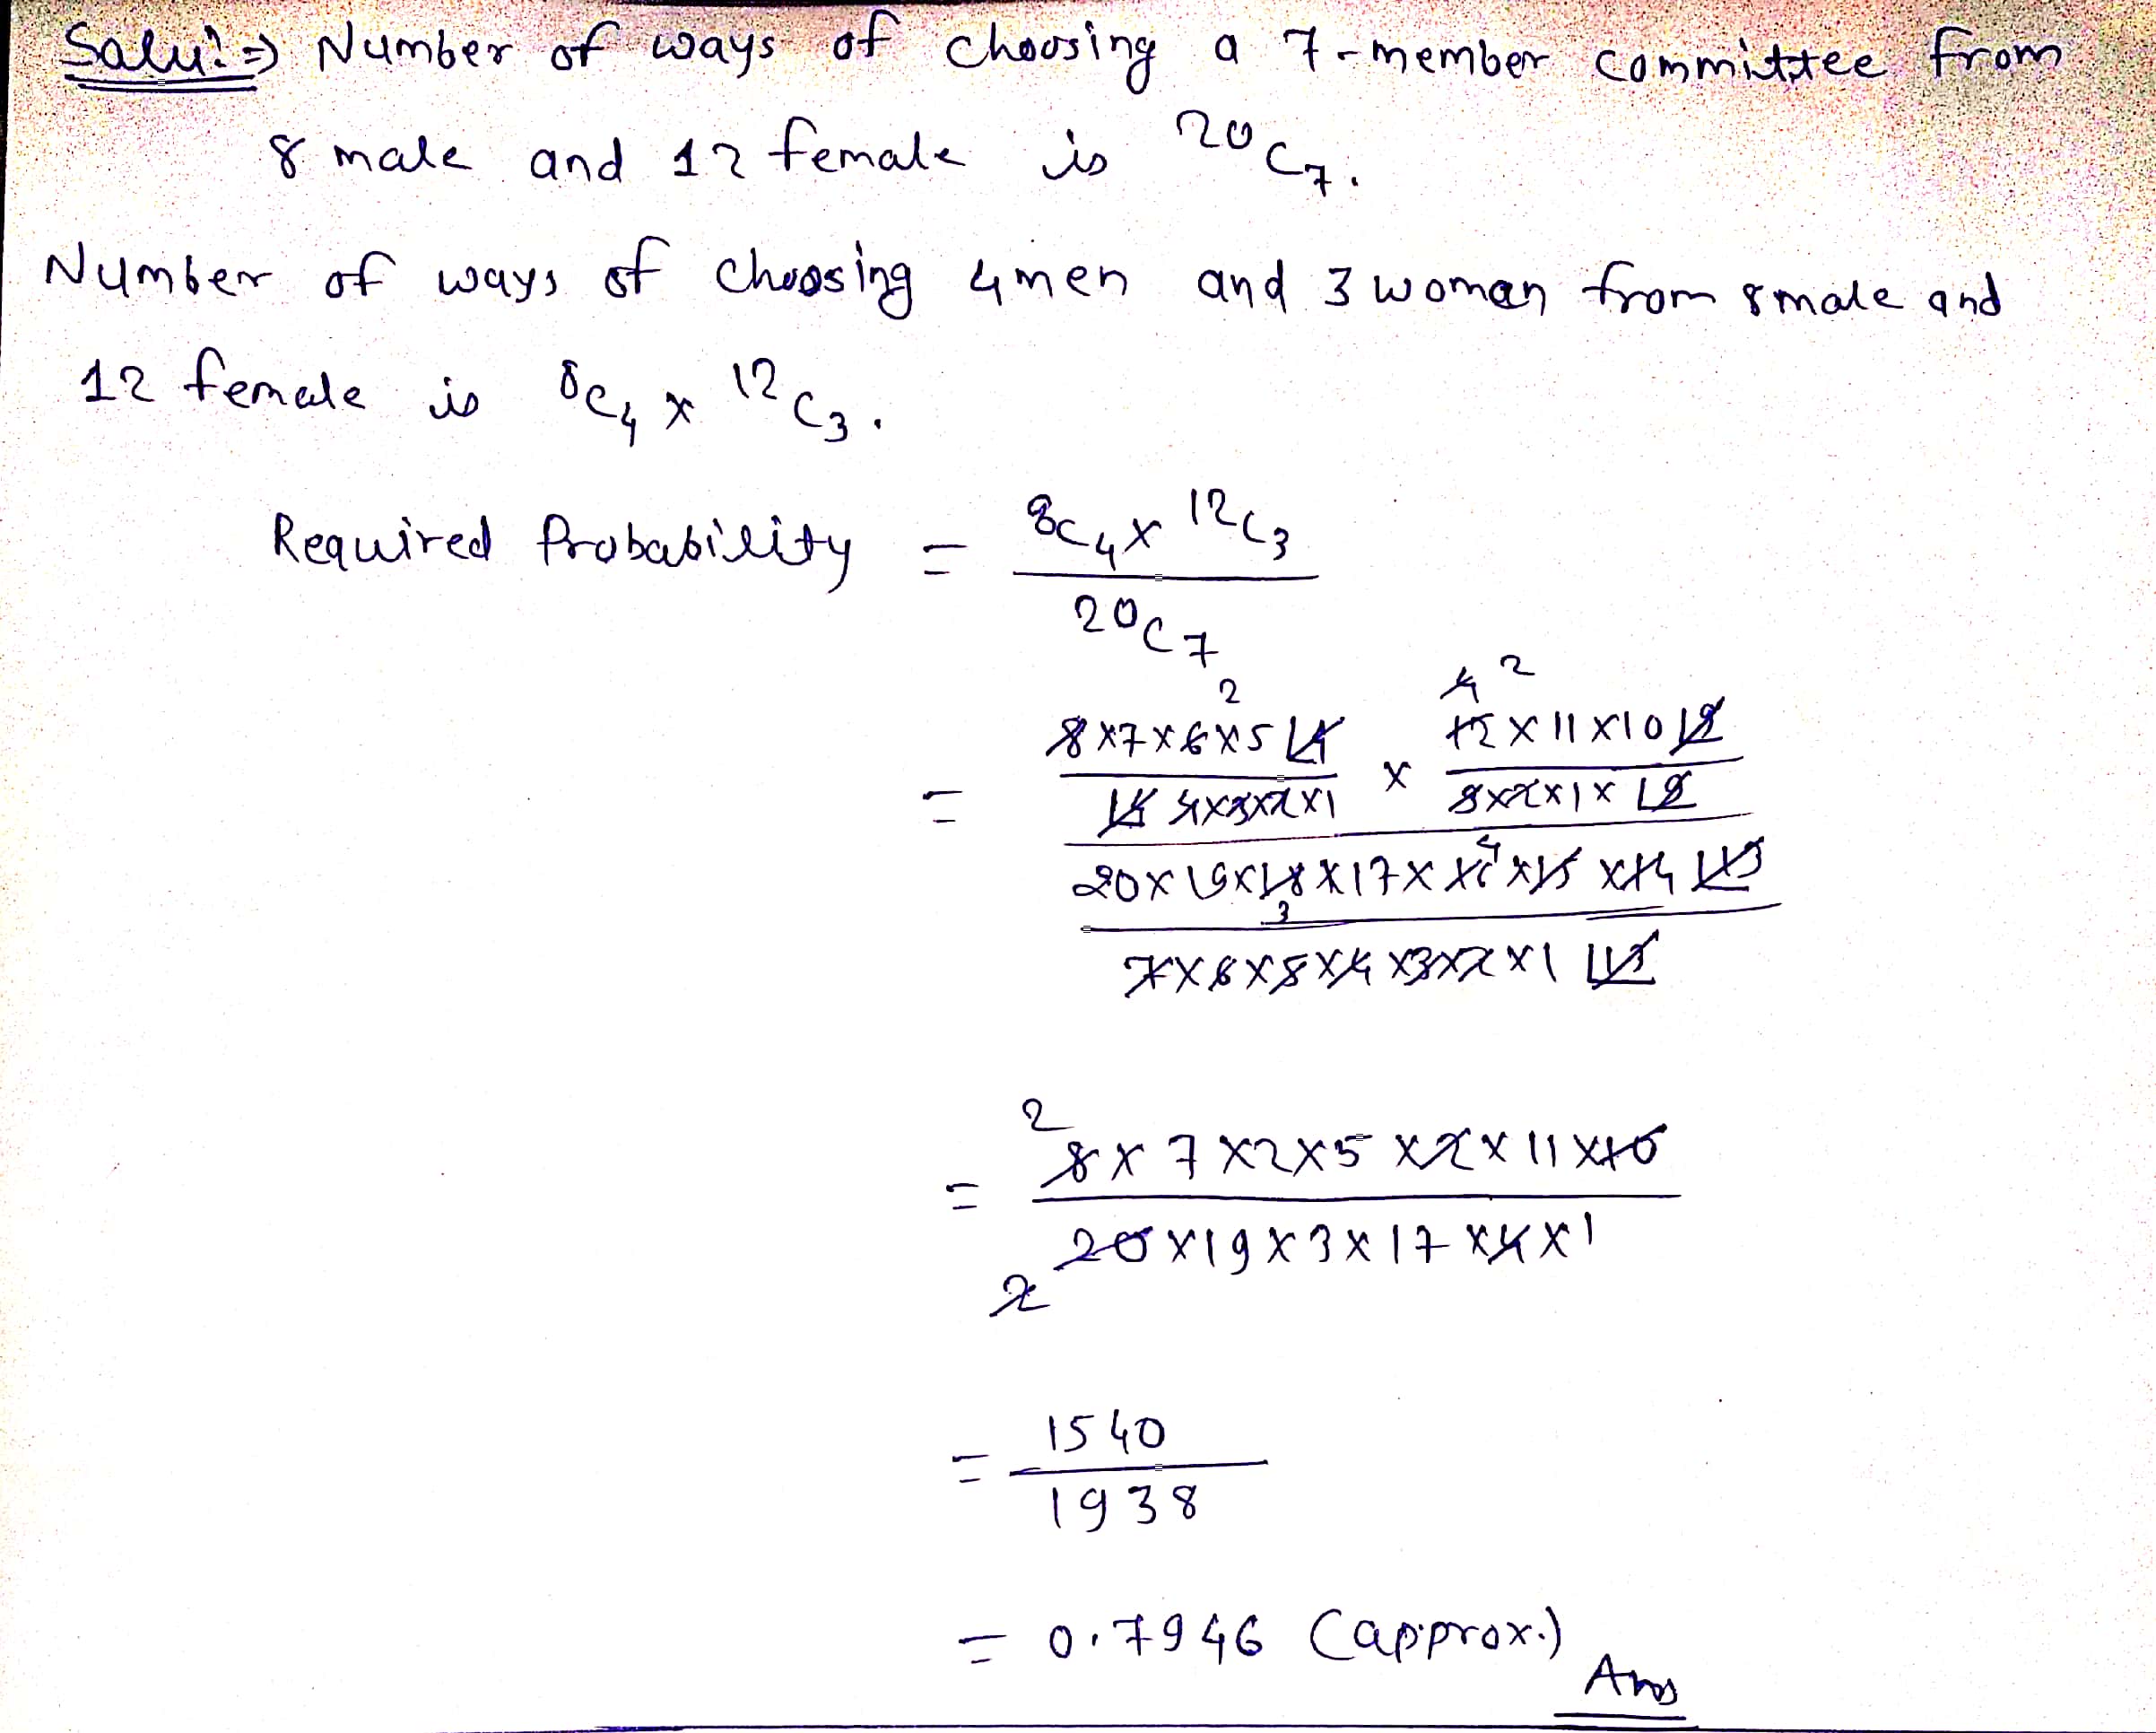 Solu:⇒ Number of ways of choosing a 7-member committee from
8 male and 12 female is 20C7.
Number of ways of choosing 4 men and 3 woman from 8 male and
12 female is 8C4 × 12C3.
Required Probability = 8C4 × 12C3
20C7
2 4 2
= 8×7×6×5 |4 × 12×11×10 |9
|4 4×3×2×1 3×2×1× |9
20×19×18×17×16×15×14 |13
4
3
7×6×5×4×3×2×1 |13
2
= 8×7×2×5×2×11×10
20×19×3×17×4×1
2
= 1540
1938
= 0.7946 (approx.)
Ans